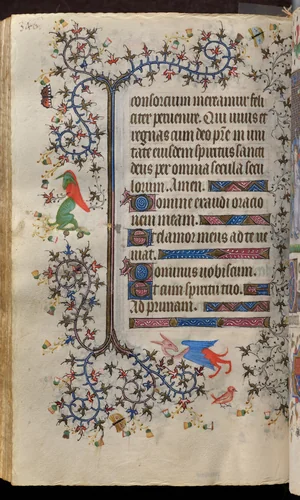 consorcium mereamur feli
citer peruenire. Qui uiuis et
regnas cum deo pr̄e in uni
tate eiusdem spiritus sancti
deus per omnia secula secu
lorum. Amen.
Domine exaudi oracio
nem meam.
Et clamor meus ad te ue
niat.
Dominus uobiscum.
Et cum spiritu tuo.
Ad primam.